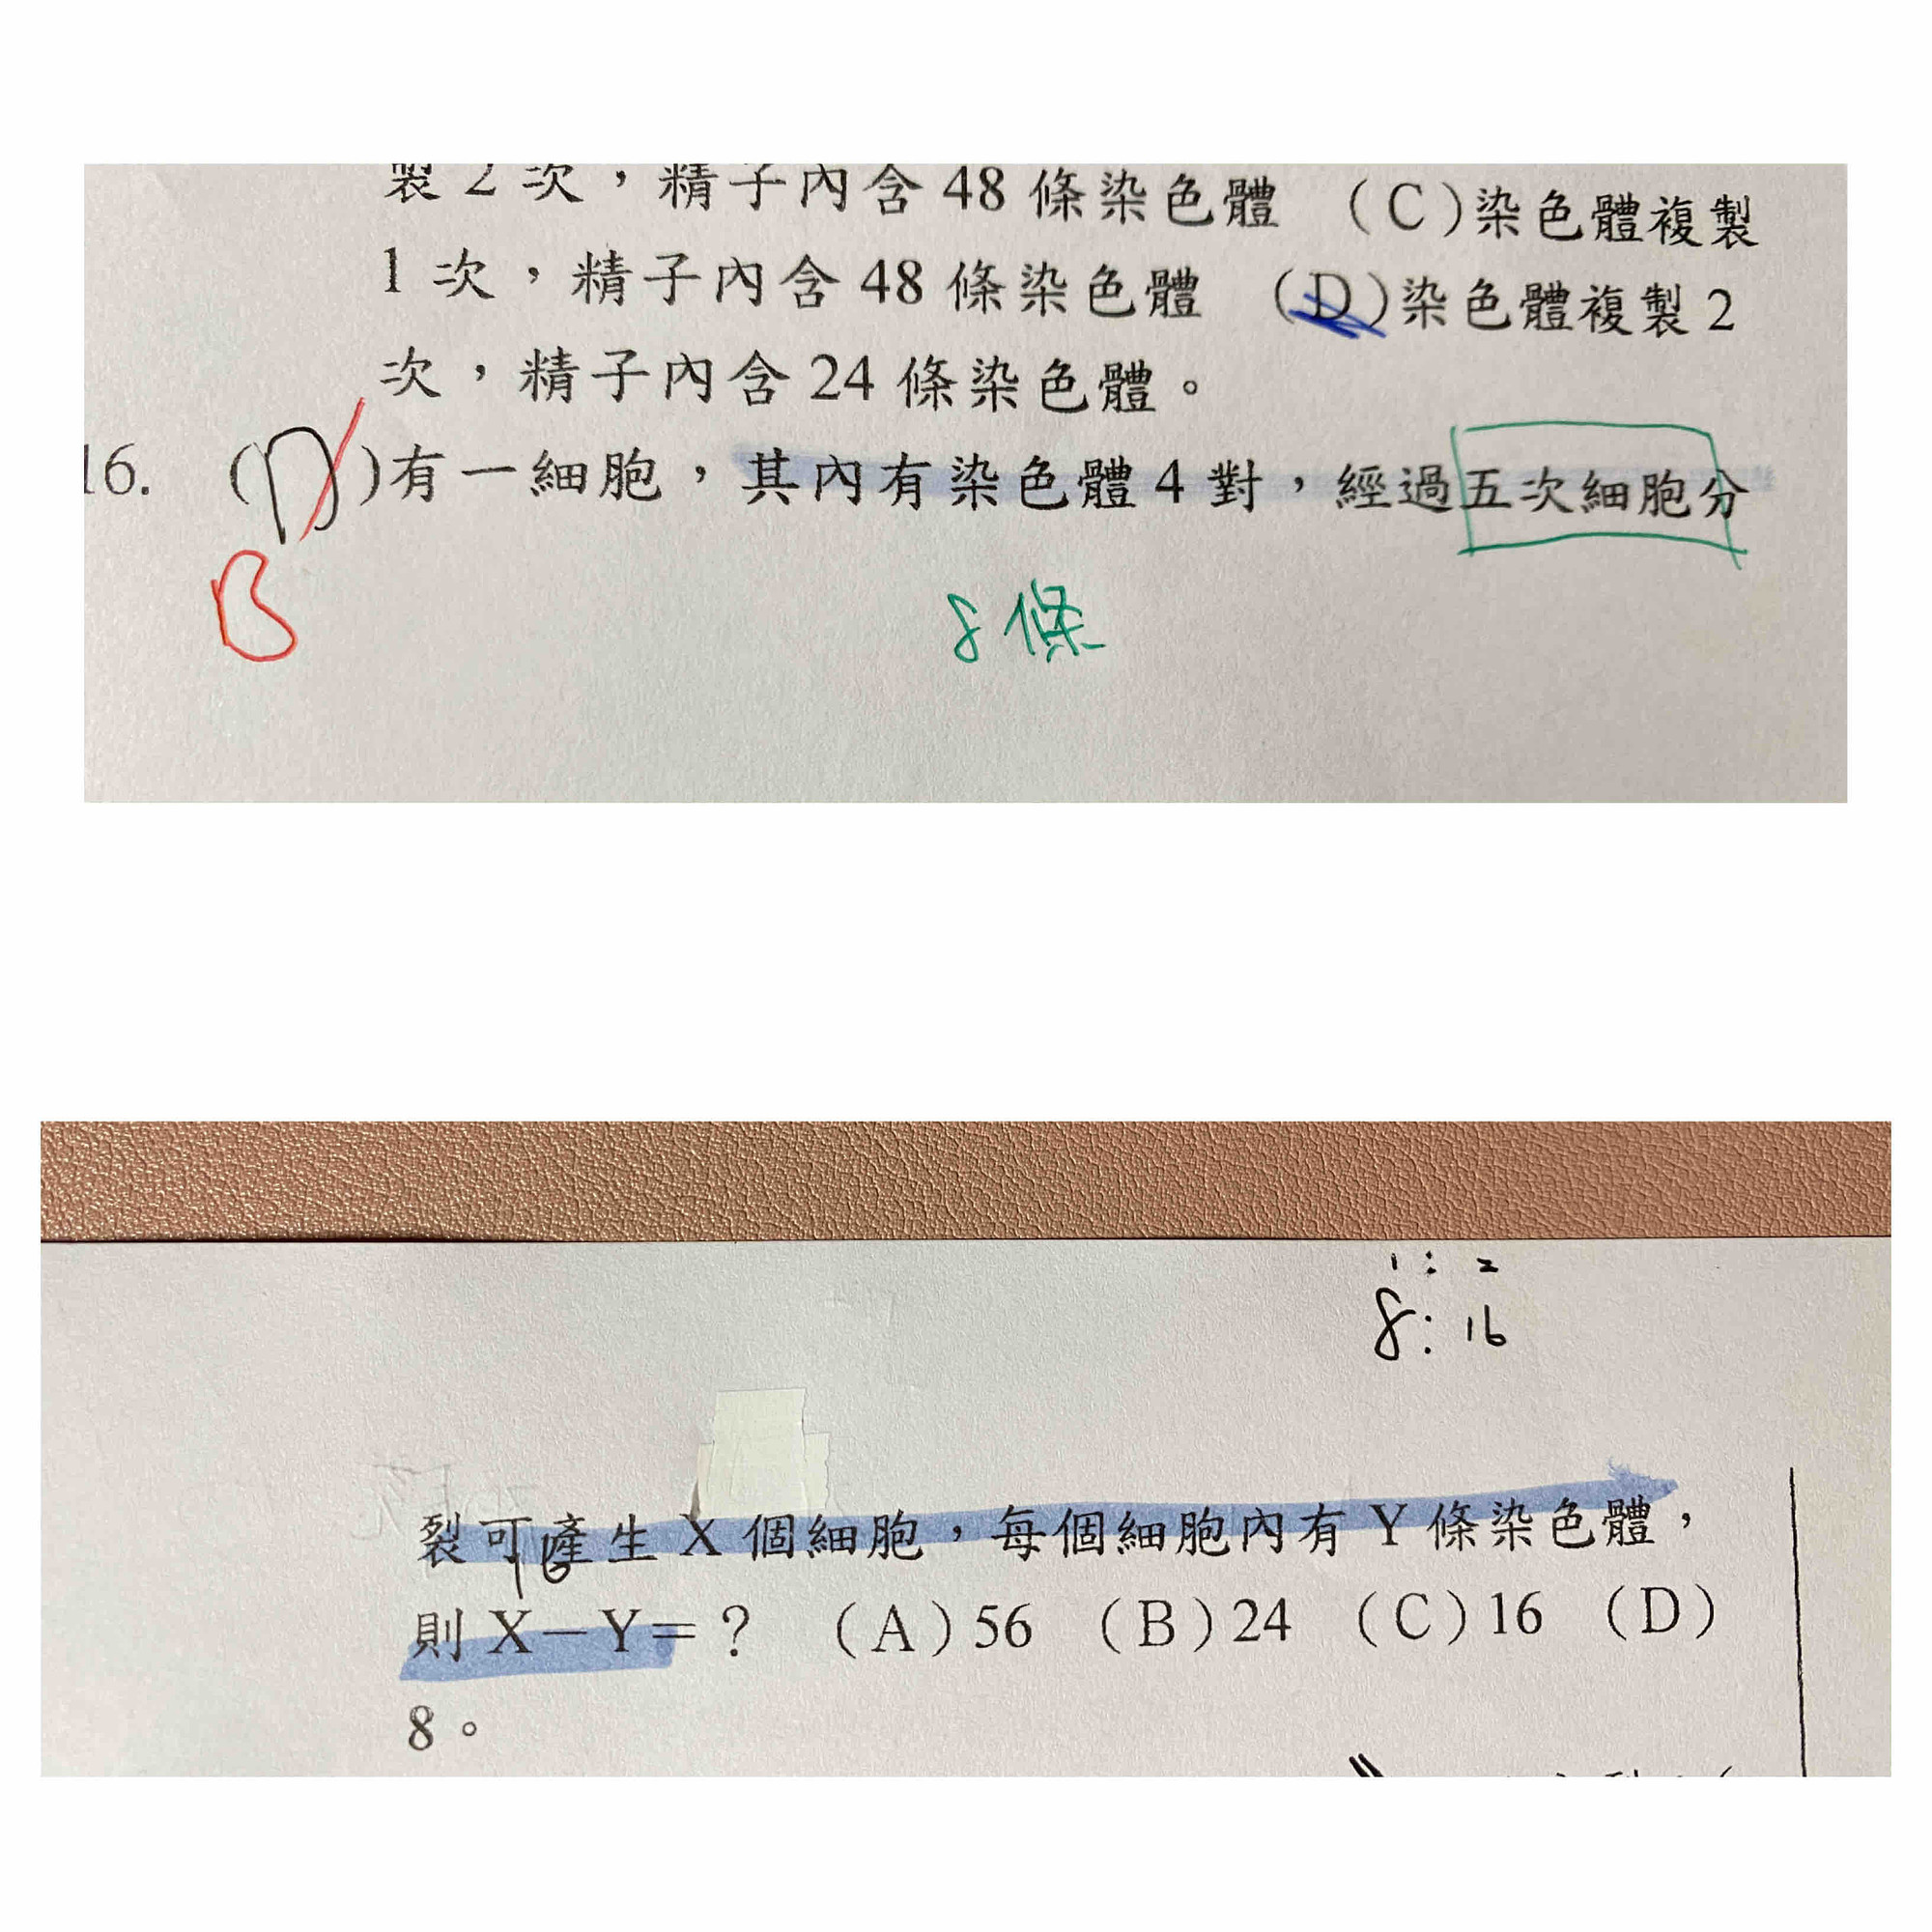 製 2 次，精子內含 48 條染色體 （C）染色體複製
1 次，精子內含 48 條染色體 （D）染色體複製 2
次，精子內含 24 條染色體。
16. （D）有一細胞，其內有染色體 4 對，經過五次細胞分
B
8條
1：2
8：16
裂可產生 X 個細胞，每個細胞內有 Y 條染色體，
16
則 X－Y＝？ （A）56 （B）24 （C）16 （D）
8。